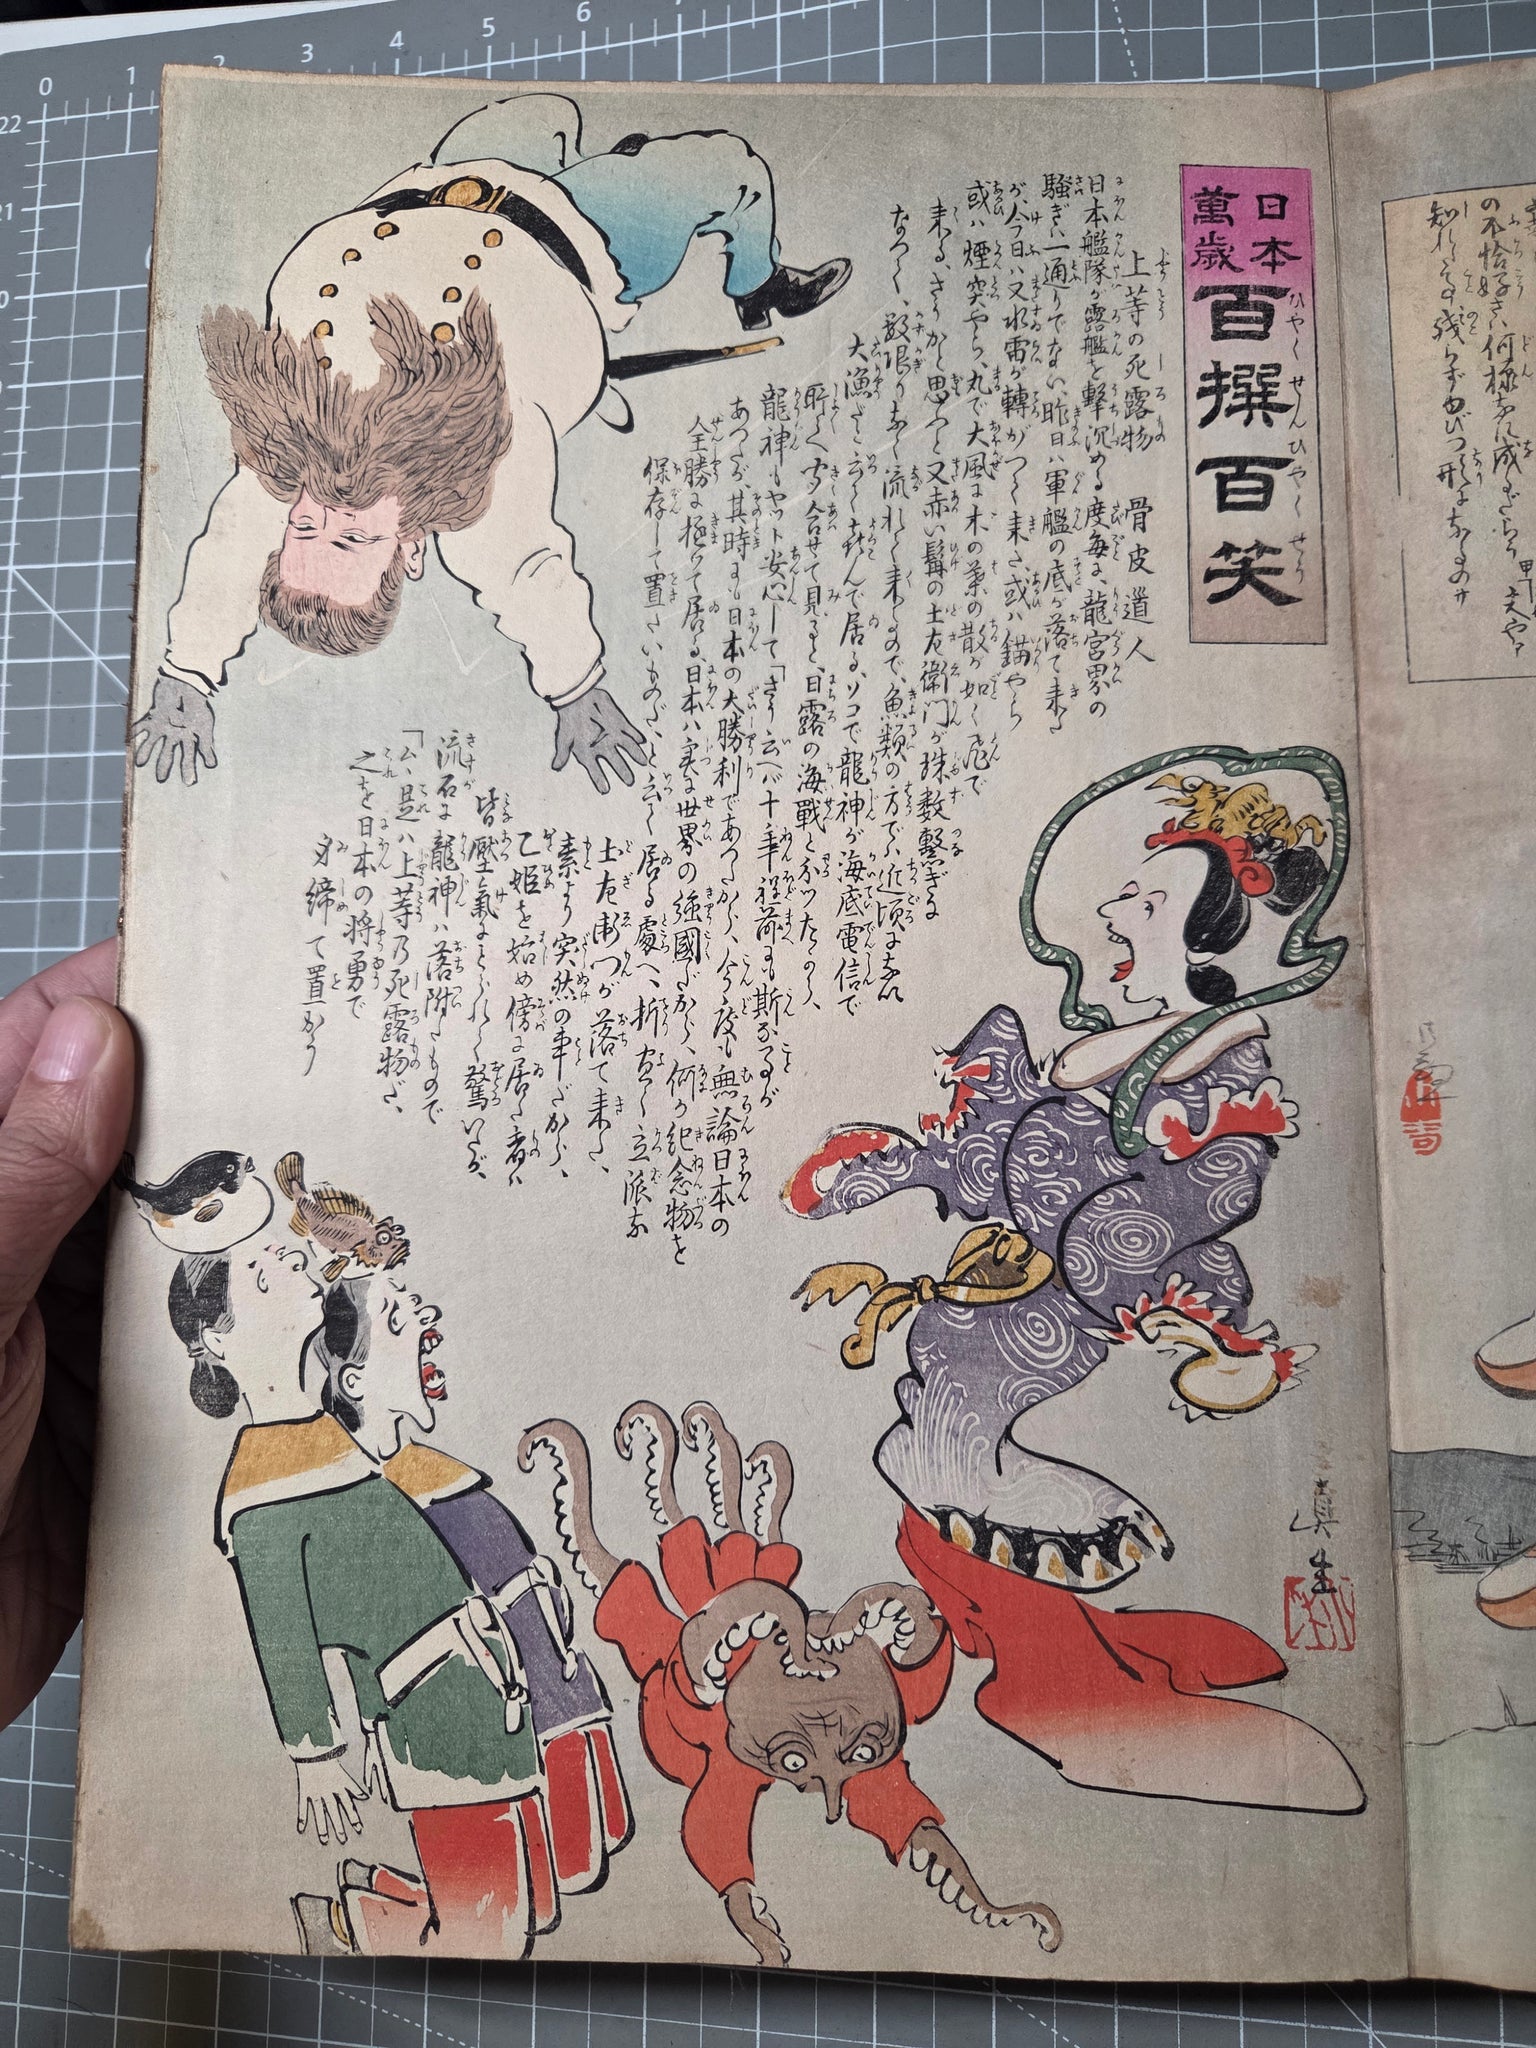 日本
萬歳
百撰百笑
ひやくせんひやくせう
上等の死露物　骨皮道人
日本艦隊が露艦を撃沈める度毎に、龍宮界の
騒ぎハ一通りでない、昨日ハ軍艦の底が落て来た
が、今日ハ又水雷が轉がつて来た、或ハ錨やら
或ハ煙突やら、丸で大風に木の葉の散が如く飛で
来る、さうかと思ふと又赤い髯の土左衛門が珠数繋ぎに
なつて、数限りなく流れて来るので、魚類の方でハ近頃にない
大漁だと云て喜んで居る、ソコで龍神が海底電信で
所々聞合せて見ると、日露の海戰と分ツたので、
龍神もヤツト安心して「さう云ヘバ十年程前にも斯な事が
あつたが、其時にも日本の大勝利であつたから、今度も無論日本の
全勝に極つて居る、日本ハ実に世界の強國だから、何か紀念物を
保存して置たいものだ、と云て居る處へ、折宜く立派な
土左衛門が落て来た、
素より突然の事だから、
乙姫を始め傍に居た者ハ
皆壓氣にとられて驚いたが、
流石に龍神ハ落附たもので
「ム、是ハ上等乃死露物だ、
之を日本の将勇で
〆締て置かう
眞生